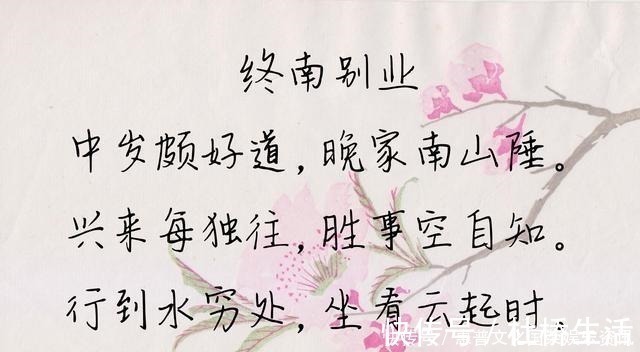 终南别业
中岁颇好道，晚家南山陲。
兴来每独往，胜事空自知。
行到水穷处，坐看云起时
快传号